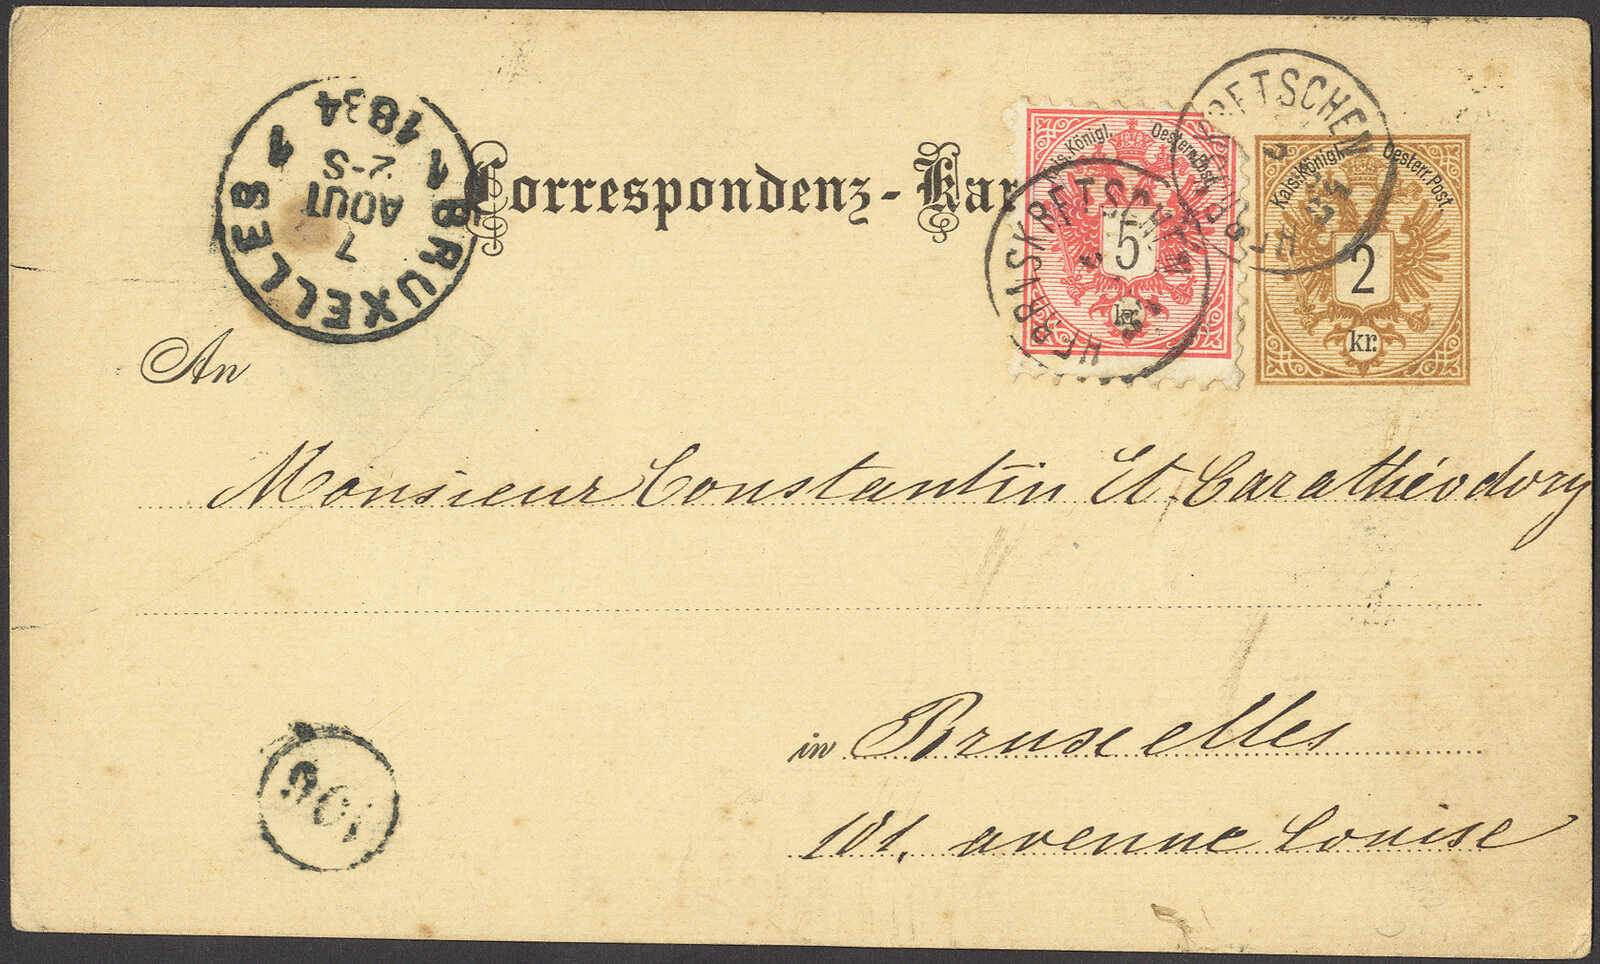 BRUXELLES
1 1
7
AOUT
7-S
1884
Correspondenz-Kar
Kais. Königl. Oesterr. Post.
5
kr.
HERRNSKRETSCHEN
Kais. Königl. Oesterr. Post.
2
kr.
An
Monsieur Constantin Et. Carathéodory
in Bruxelles
101. avenue Louise
106